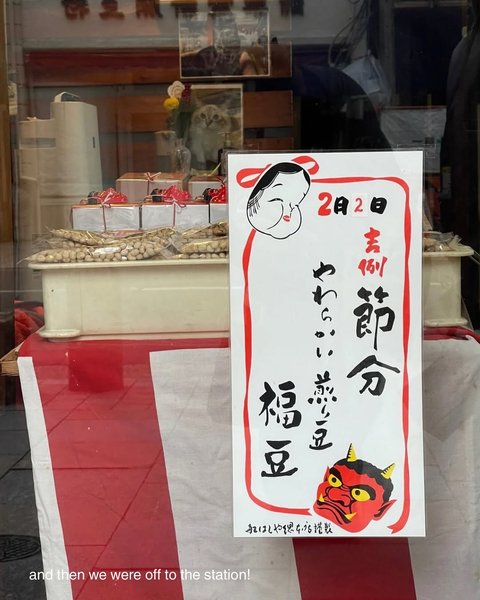 2月2日
吉例
節分
やわらかい煎り豆
福豆
and then we were off to the station!